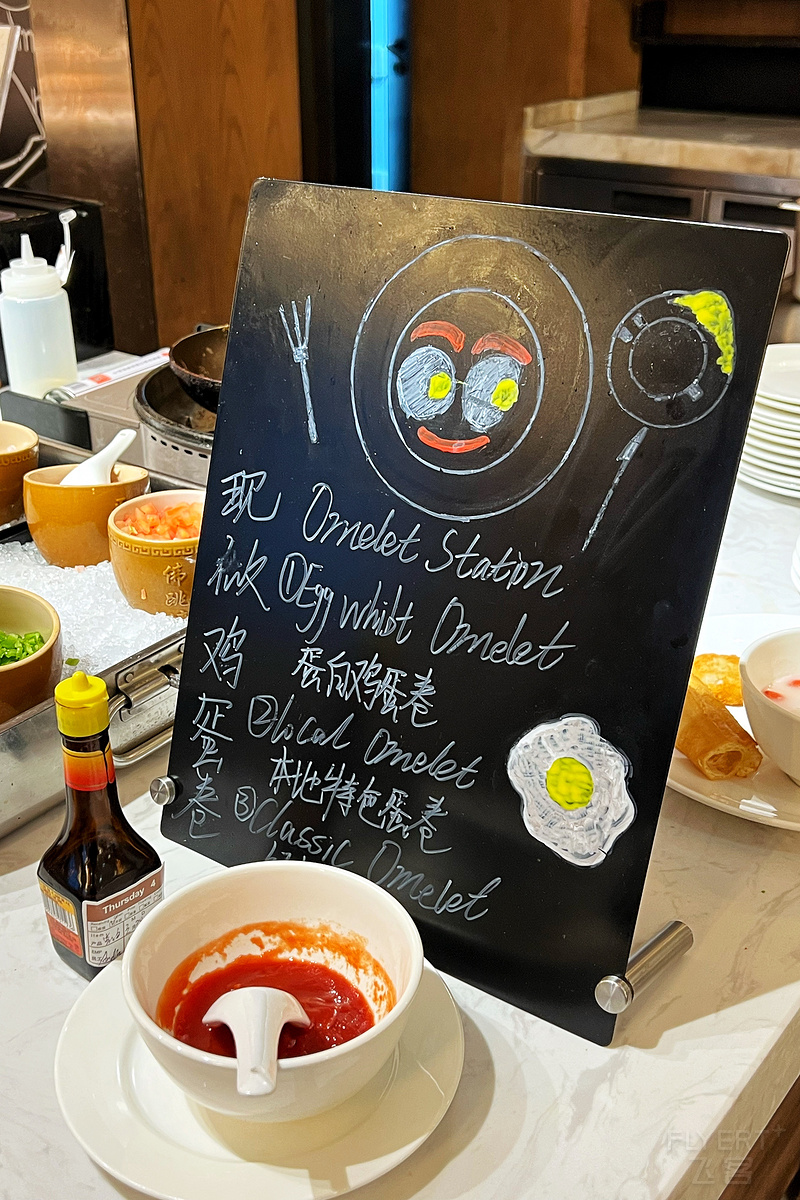 现做鸡蛋卷
Omelet Station
①Egg whist Omelet
蛋白鸡蛋卷
②local Omelet
本地特色蛋卷
③Classic Omelet
Thursday 4
FLYERT
飞客